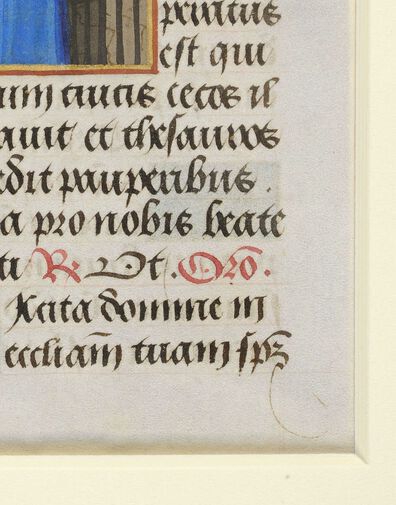 peratus
est qui
num crucis cecos il
auit et thesauros
edit pauperibus .
a pro nobis beate
ti ℟ Ut . Oro͞.
Xcita domine in
eccliam̄ tuam sp̄s